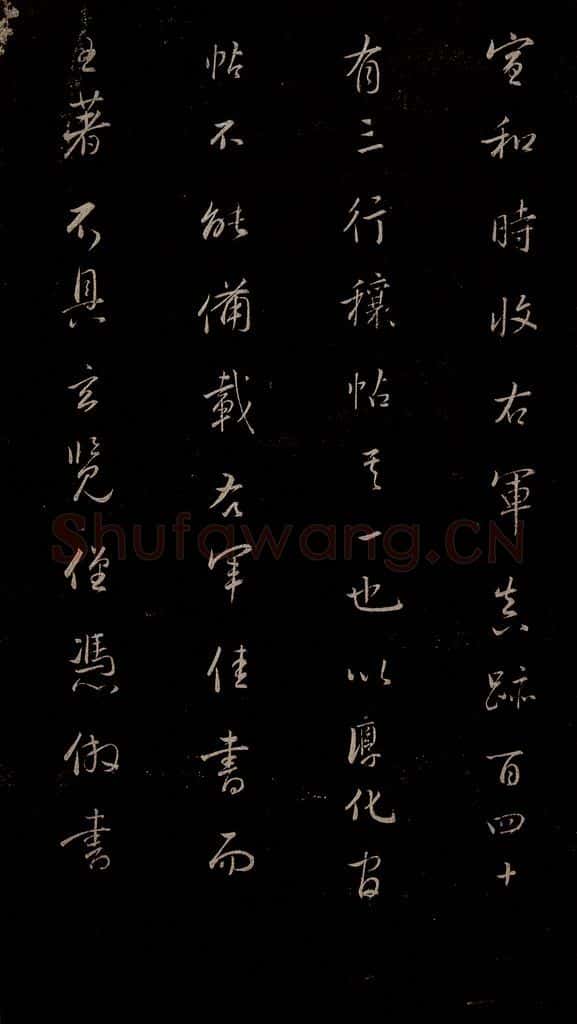 宣和時收右軍真跡百四十
有三行穰帖其一也以淳化官
帖不能備載右軍佳書而
王著不具玄覽僅憑俶書
Shufawang.CN